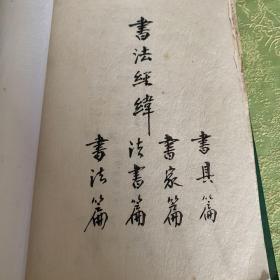 書法經緯
書具篇
書家篇
法書篇
書法篇